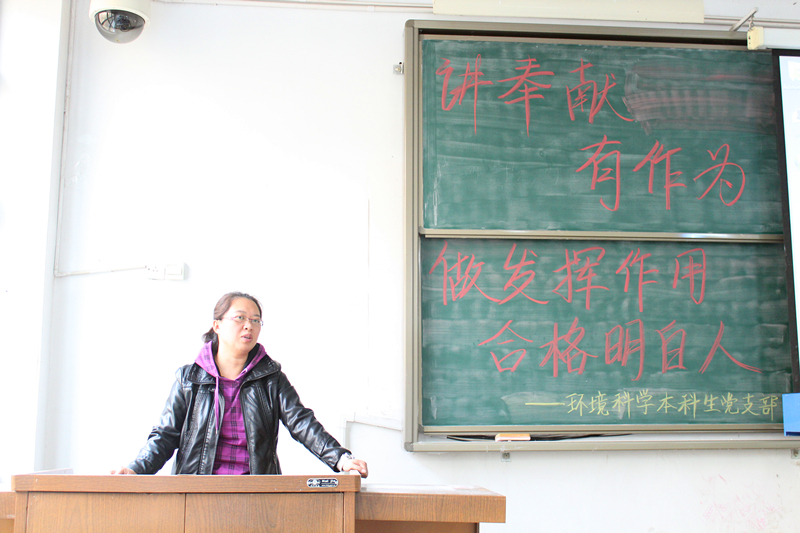 讲奉献
有作为
做发挥作用
合格明白人
——环境科学本科生党支部